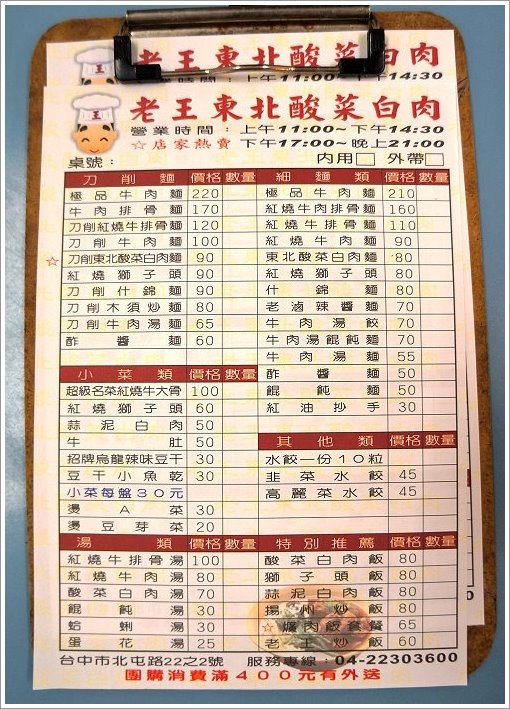 老王東北酸菜白肉
時間：上午11:00~下午14:30
王
老王東北酸菜白肉
營業時間：上午11:00~下午14:30
☆店家熱賣 下午17:00~晚上21:00
桌號： 內用□ 外帶□
刀削麵 價格 數量
極品牛肉麵 220
牛肉排骨麵 170
刀削紅燒牛排骨麵 120
刀削牛肉麵 100
☆ 刀削東北酸菜白肉麵 90
紅燒獅子頭 90
刀削什錦麵 90
刀削木須炒麵 80
刀削牛肉湯麵 65
酢醬麵 60
小菜類 價格 數量
超級名菜紅燒牛大骨 100
紅燒獅子頭 60
蒜泥白肉 50
牛肚 50
招牌烏龍辣味豆干 30
豆干小魚乾 30
小菜每盤30元
燙A菜 30
燙豆芽菜 20
湯類 價格 數量
紅燒牛排骨湯 100
紅燒牛肉湯 80
酸菜白肉湯 70
餛飩湯 30
蛤蜊湯 30
蛋花湯 25
細麵類 價格 數量
極品牛肉麵 210
紅燒牛肉排骨麵 160
紅燒牛排骨麵 110
紅燒牛肉麵 90
東北酸菜白肉麵 80
紅燒獅子頭 80
什錦麵 80
老滷辣醬麵 70
牛肉湯餃 70
牛肉湯餛飩麵 70
牛肉湯麵 55
酢醬麵 50
餛飩麵 50
紅油抄手 30
其他類 價格 數量
水餃一份10粒
韭菜水餃 45
高麗菜水餃 45
特別推薦 價格 數量
酸菜白肉飯 80
獅子頭飯 80
蒜泥白肉飯 80
揚州炒飯 80
☆爌肉飯套餐 65
老王炒飯 60
台中市北屯路22之2號 服務專線：04-22303600
團購消費滿400元有外送